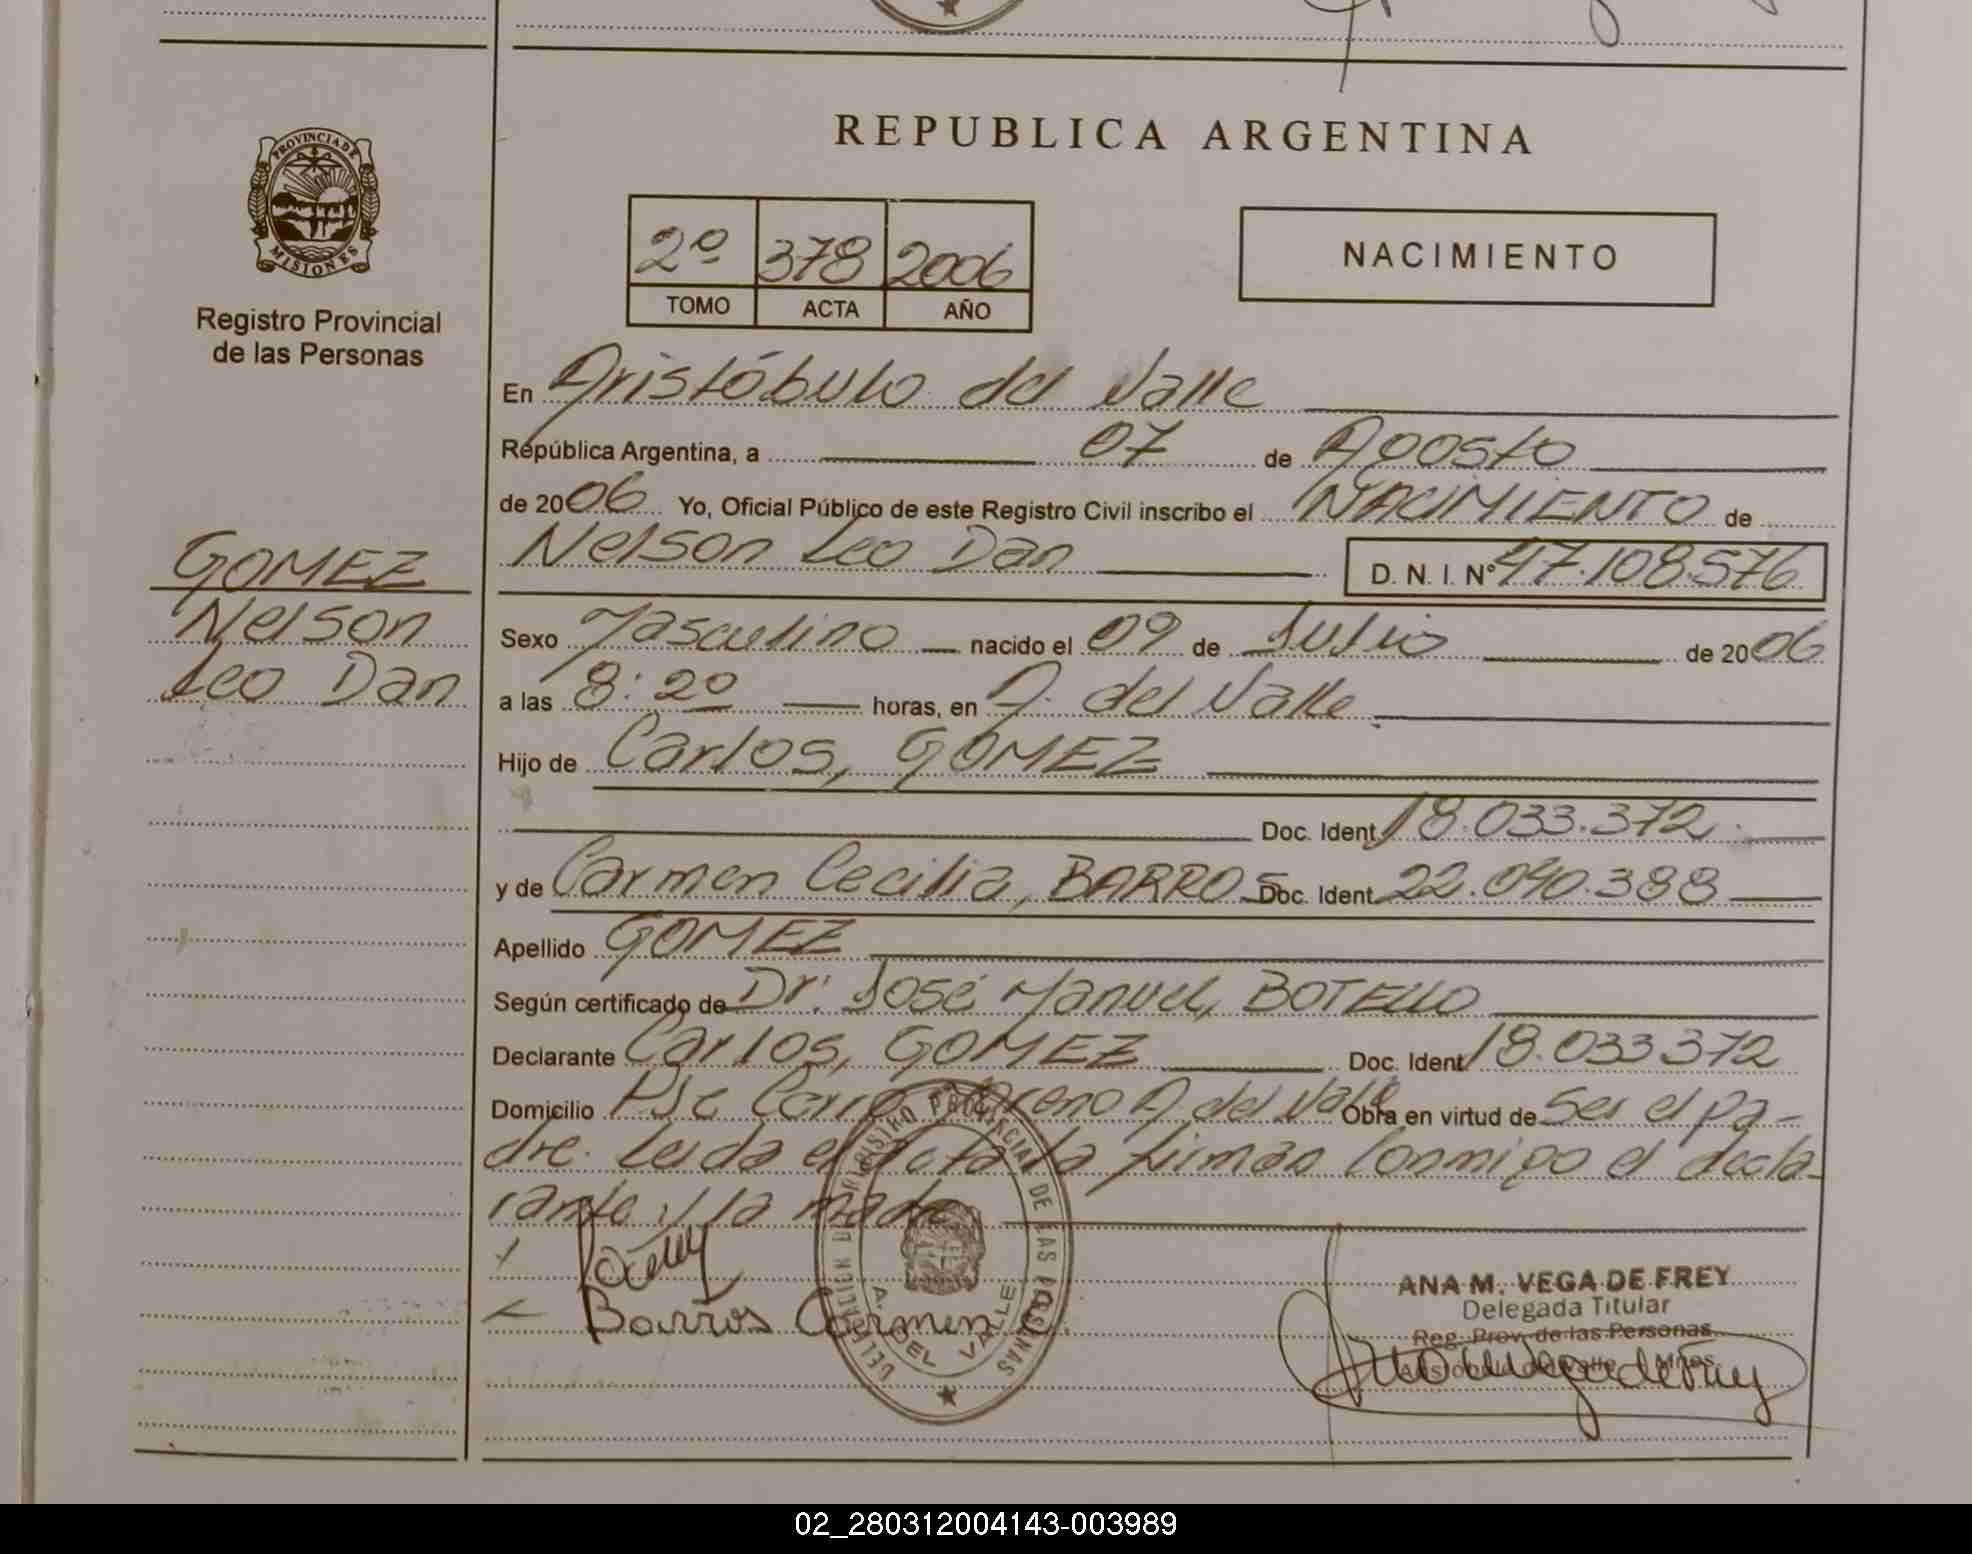 PROVINCIA DE
MISIONES
Registro Provincial
de las Personas
GOMEZ
Nelson
Leo Dan
REPUBLICA ARGENTINA
2º 378 2006
TOMO ACTA AÑO
NACIMIENTO
En Aristóbulo del Valle
República Argentina, a 07 de Agosto
de 2006 Yo, Oficial Público de este Registro Civil inscribo el NACIMIENTO de
Nelson Leo Dan D. N. I. Nº 47.108.576
Sexo Masculino nacido el 09 de Julio de 2006
a las 8:20 horas, en A. del Valle
Hijo de Carlos, GOMEZ
Doc. Ident 18.033.372
y de Carmen Cecilia, BARROS Doc. Ident. 22.090.388
Apellido GOMEZ
Según certificado de Dr. José Manuel, BOTELLO
Declarante Carlos, GOMEZ Doc. Ident 18.033372
Domicilio A. del Valle Obra en virtud de Ser el pa-
dre. Leida el acta la firman Conmigo el decla-
rante y la madre
Barros Carmen C.
DELEGACION REGISTRO PROVINCIAL DE LAS PERSONAS
A. DEL VALLE
ANA M. VEGA DE FREY
Delegada Titular
Reg. Prov. de las Personas
Aristóbulo del Valle Mnes.
02_280312004143-003989